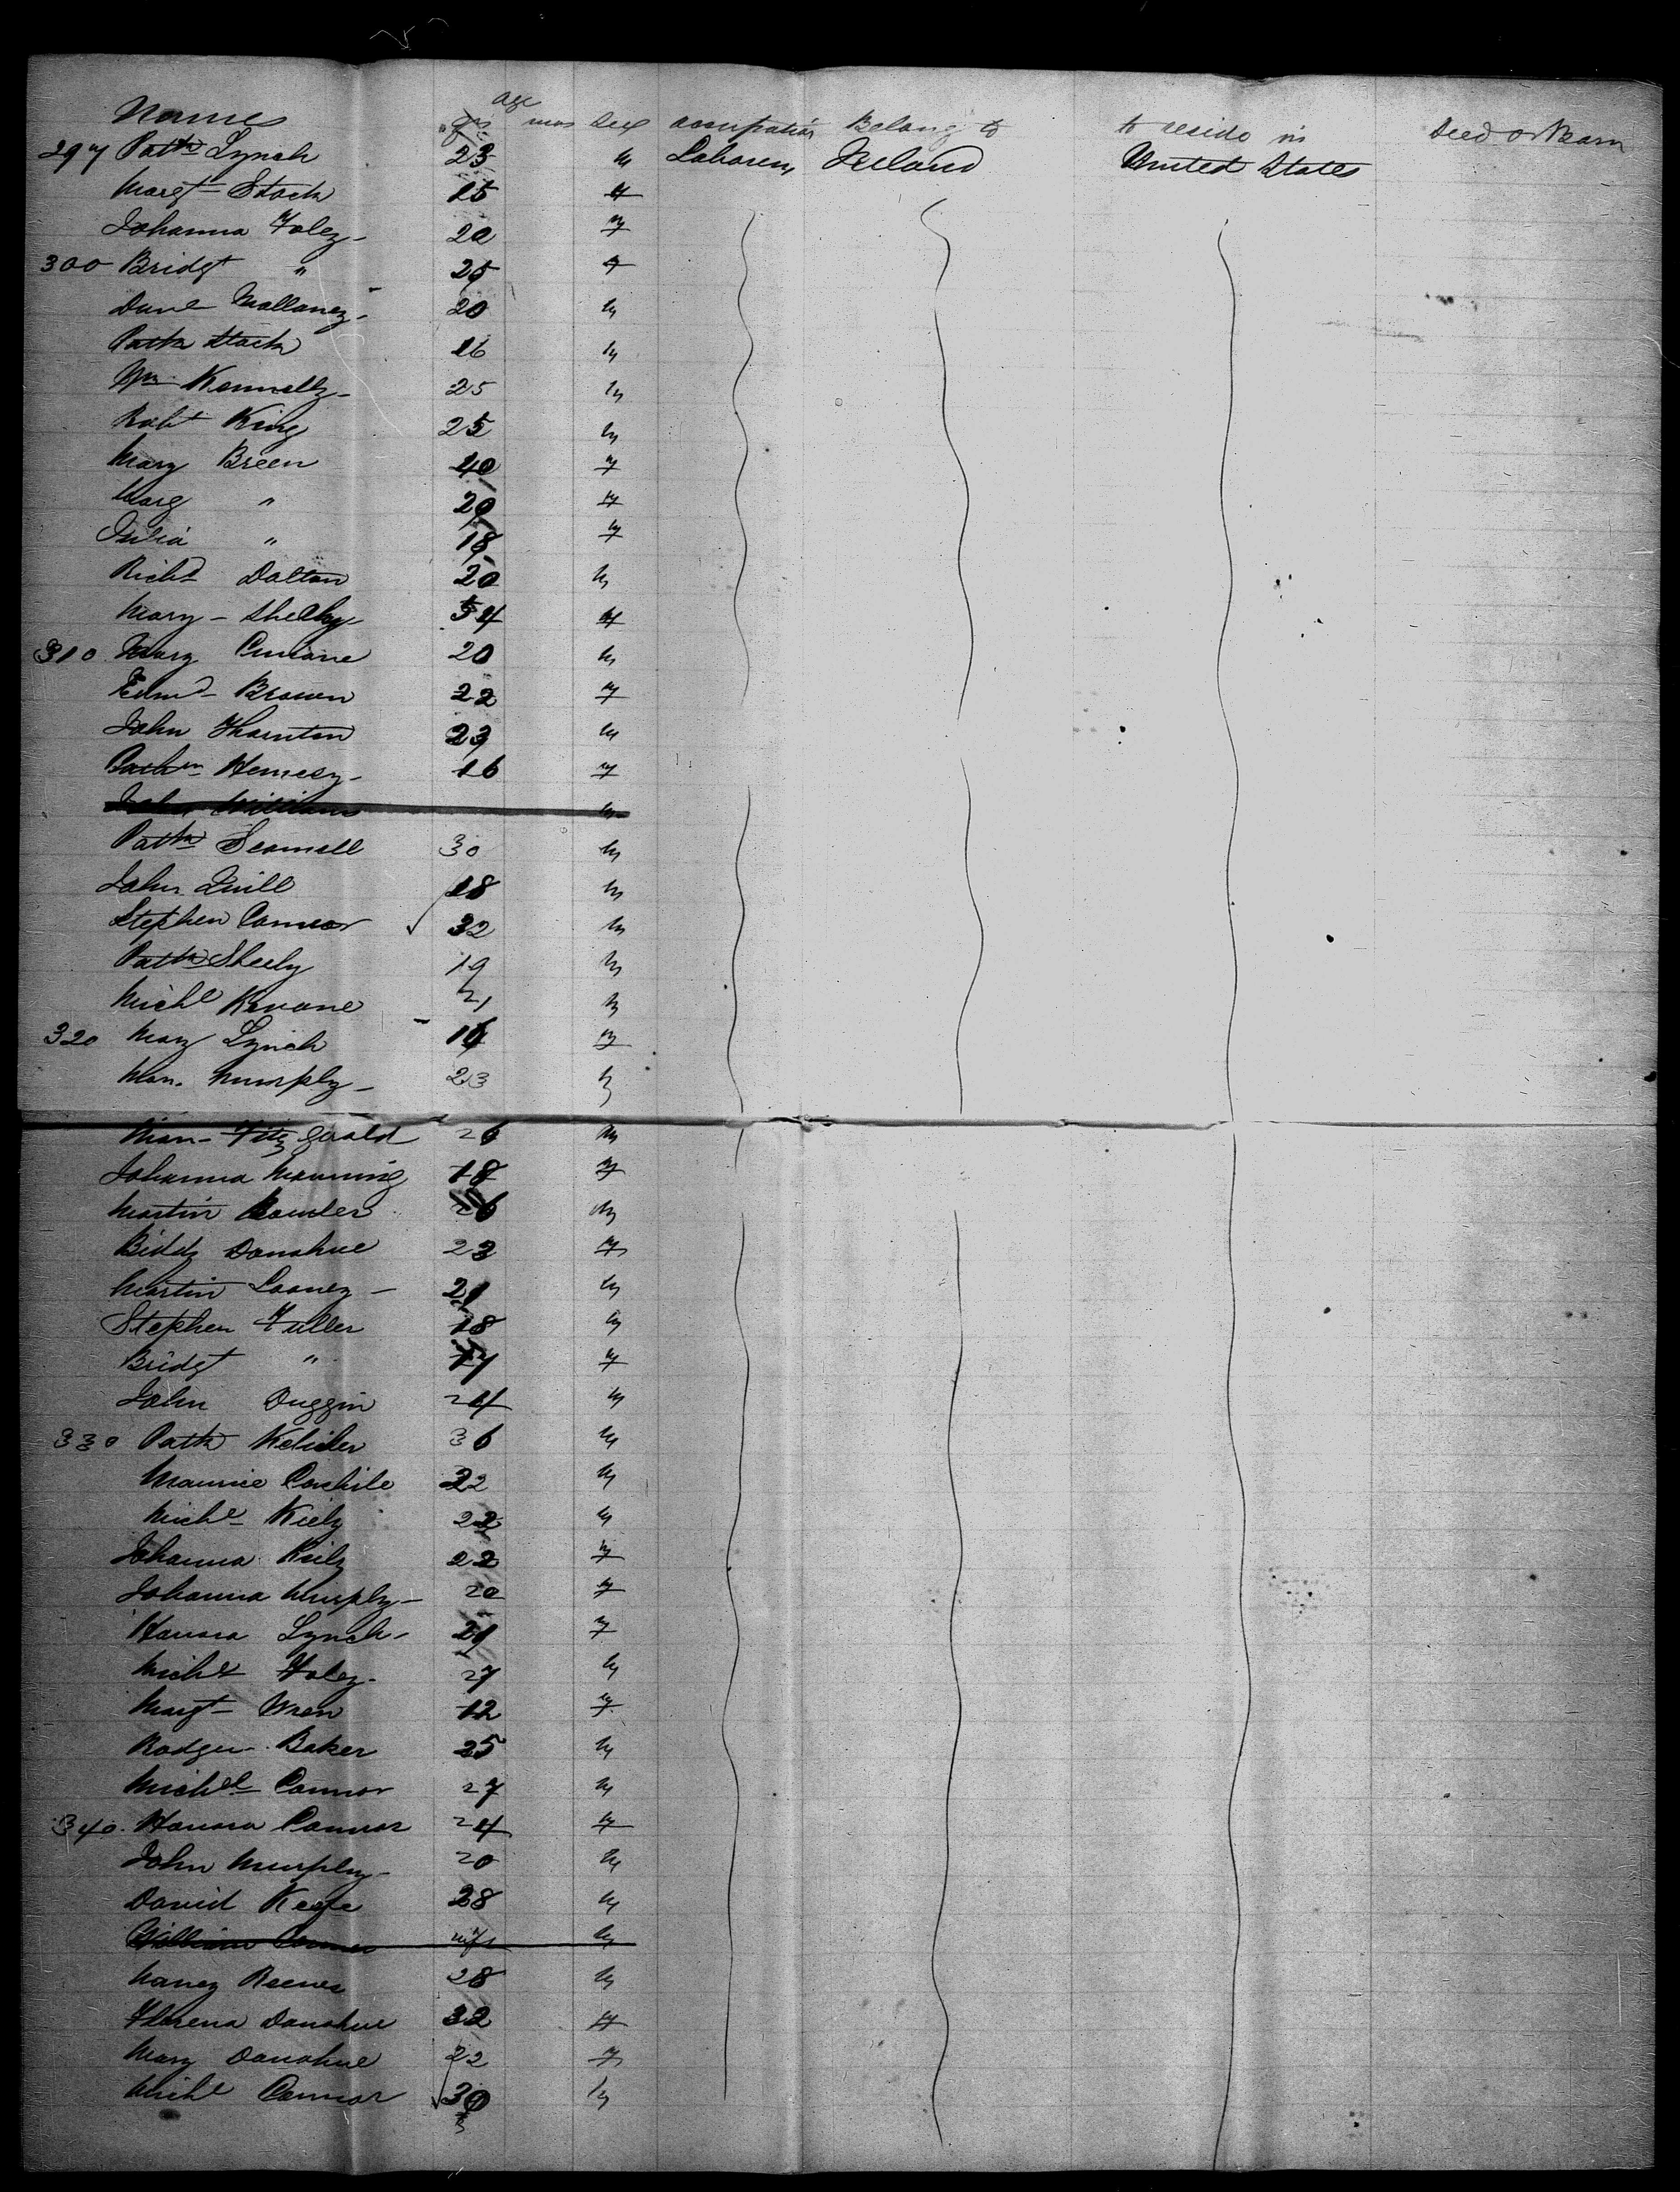 Names age yrs mos Sex occupation Belong to to reside in Died or Born
297 Patk Lynch 23 m Laborers Ireland United States
Margt Stack 15 f
Johanna Foley 20 f
300 Bridgt " 25 f
Danl Mallaney 20 m
Patk Stack 16 m
Wm Kennelly 25 m
Robt King 25 m
Mary Breen 40 f
Marg " 20 f
Julia " 18 f
Richd Dalton 20 m
Mary Sheehy 54 f
310 Mary Cuniane 20 m
Edmd Brown 22 f
John Thornton 23 m
16 f
John Williams m
Patk Scannell 30 m
John Quill 18 m
Stephen Connor 32 m
Patk Sheehy 19 m
Michl Kevane 21 m
320 Mary Lynch 16 f
Murphy 23 m
Fitzgerald 26 m
Johanna Manning 18 f
Martin Bowler 26 m
Biddy Donohue 23 f
Martin Looney 21 m
Stephen Fuller 18 m
Bridgt " 17 f
John Duggin 24 m
330 Patk Keliher 36 m
Maurice 22 m
Michl Kiely 22 m
Johanna Kiely 22 f
Johanna Murphy 20 f
Hanora Lynch 21 f
Michl Foley 27 m
Margt Wren 12 f
Rodger Baker 25 m
Michel Connor 27 m
340 Hanora Connor 24 f
John Murphy 20 m
David Keefe 28 m
William Connor m
Nancy Reeves 28 m
Donohue 32 f
Mary Donohue 22 f
Michl Connor 30 m